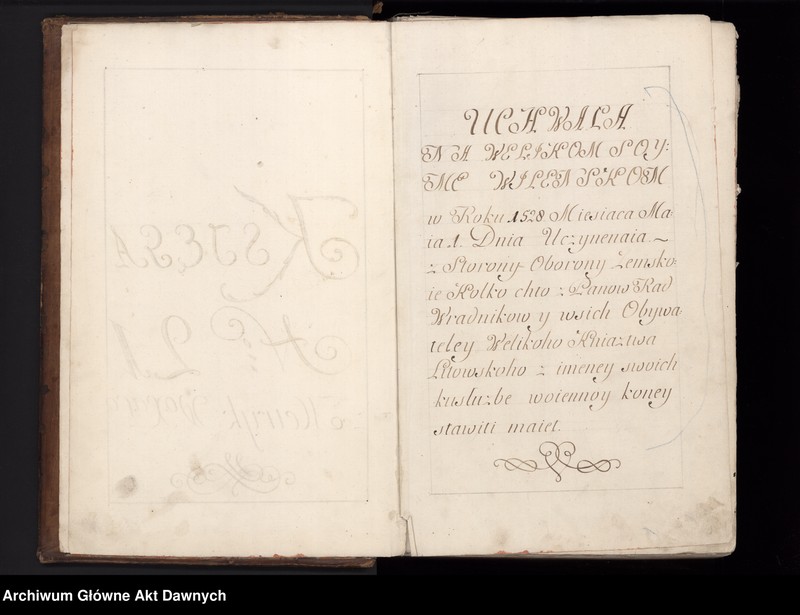 UCHWALA
NA WELIKOM SOY:
ME WILENSKOM
w Roku 1528 Miesiaca Ma-
ia 1. Dnia Uczynenaia ~
z Storony Oborony Zemsko:
ie Kolko chto z Panow Rad
Wradnikow y wsich Obywa-
teley Welikoho Kniaztwa
Litowskoho z imeney swoich
kusłużbe woiennoy koney
stawiti maiet.
Archiwum Główne Akt Dawnych